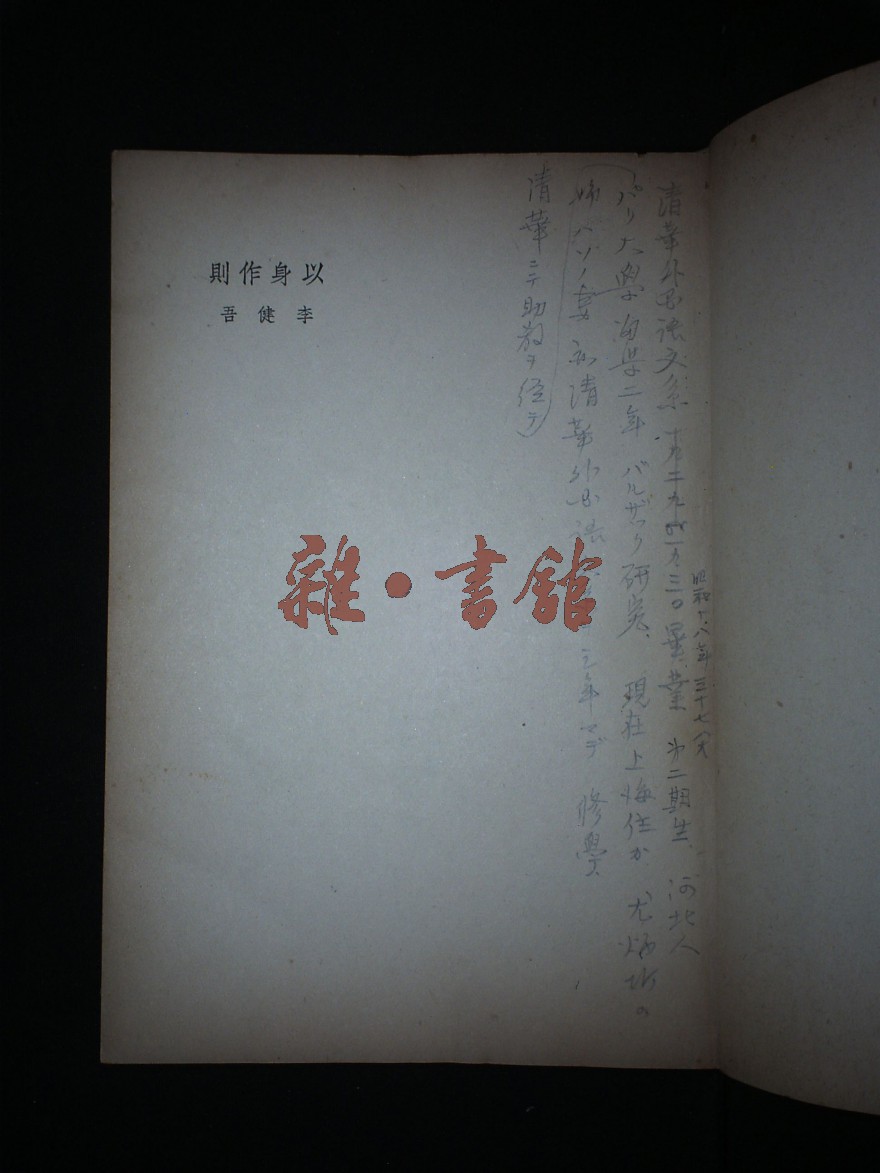 昭和十八年三十七才
清華外国語文系 一九二九、一九三〇畢業 第二期生、河北人
パリ大學 留学二年 バルザック研究、現在上海住か 尤炳圻の
姉ハソノ妻 清華外国語 三年マデ 修學
清華ニテ助教ヲ経テ
則作身以
吾健李
雜·書館